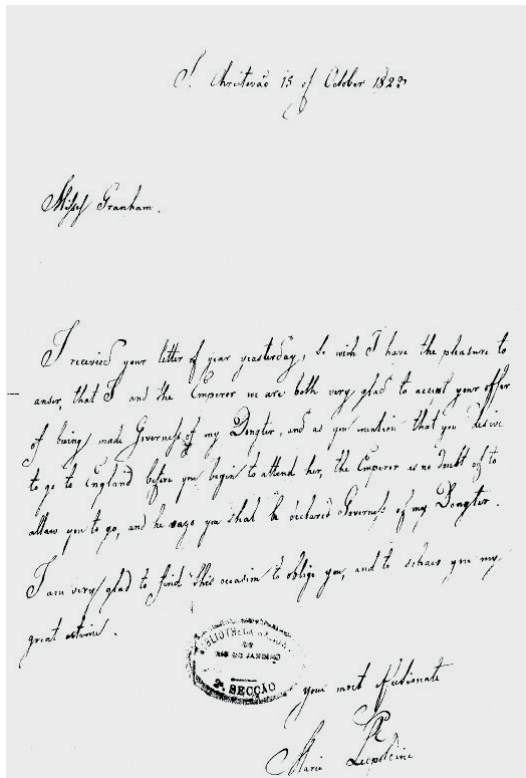 S. Christovão 15 of October 1823
Missess Granham.
I received your letter of year yeasterday, to wish I have the pleasure to
anser, that I and the Emperor we are both very glad to accept your offer
of being made Governess of my Dongter, and as you mation that you desire
to go to England before you begin to attend her, the Emperor as no doubt of to
allow you to go, and he says you shal be declared Governess of my Dongter.
I am very glad to find this occasion to oblige you, and to schaw you my
great esteime.
BIBLIOTHECA NACIONAL
DO
RIO DE JANEIRO
2ª SECÇÃO
your most affectionate
Marie Leopoldine